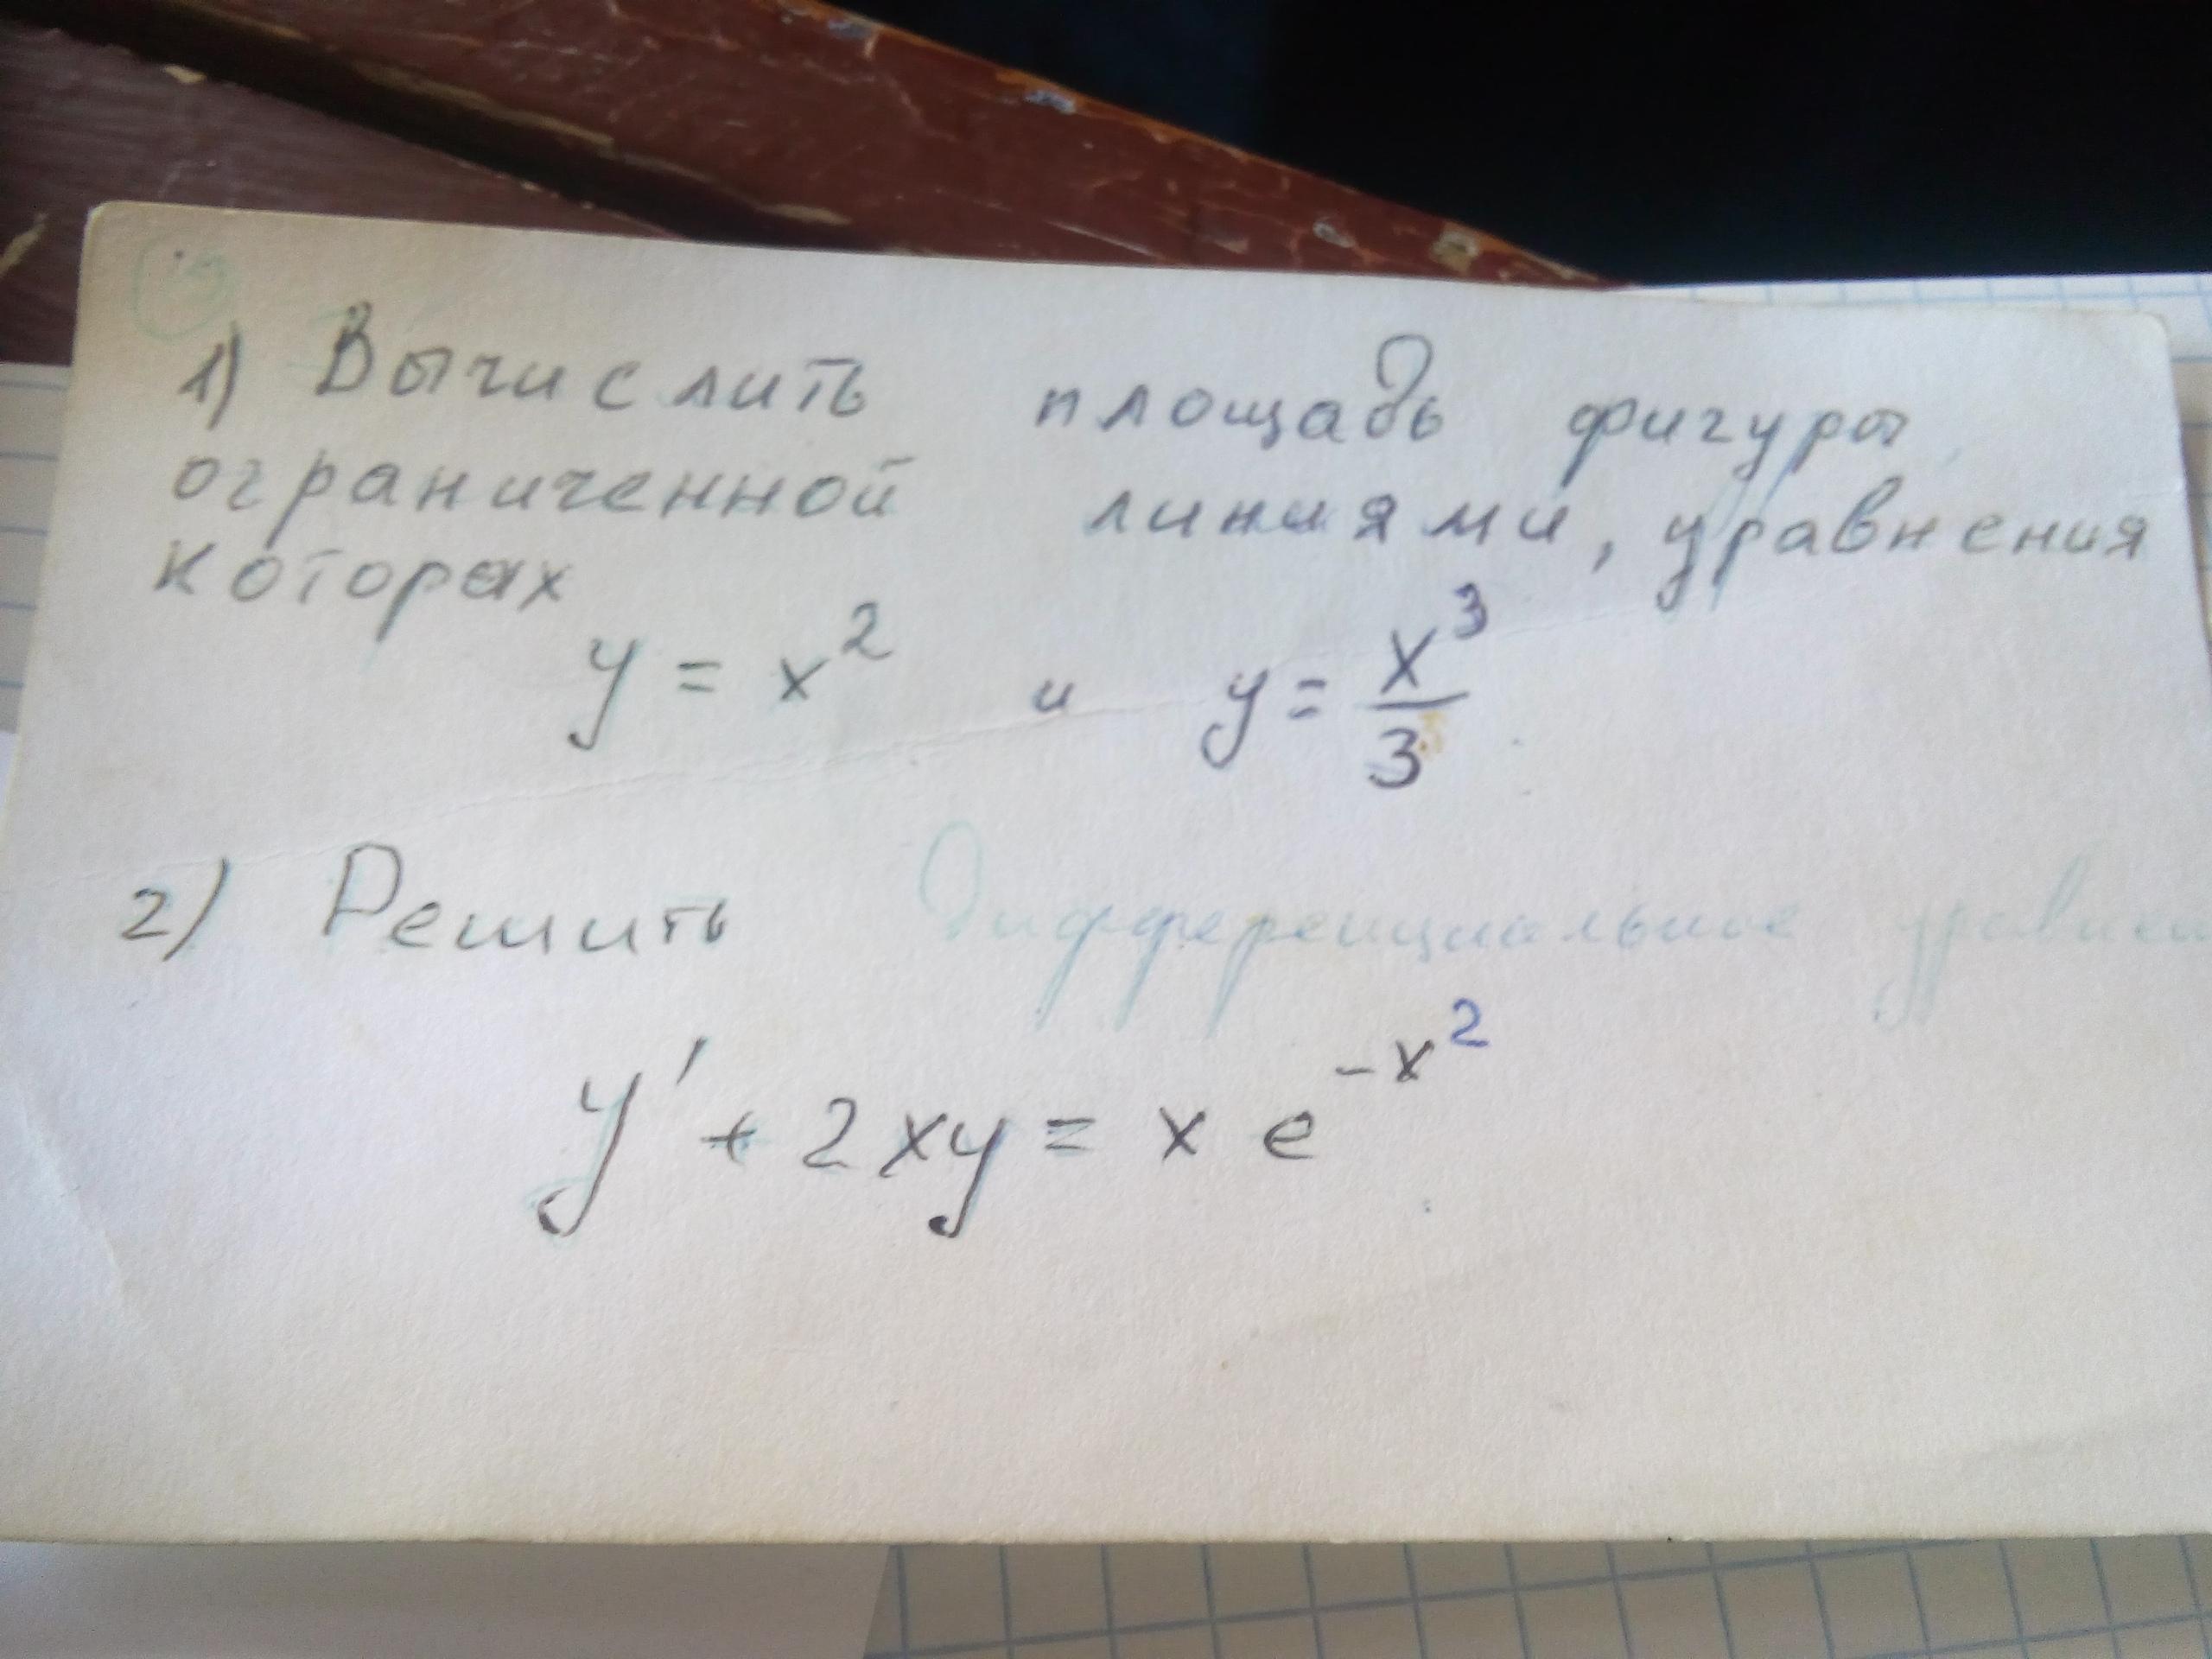 1) Вычислить площадь фигуры
ограниченной линиями, уравнения
которых
y = x² и y = x³/3
2) Решить Дифференциальное
y' + 2xy = x e^(-x²)